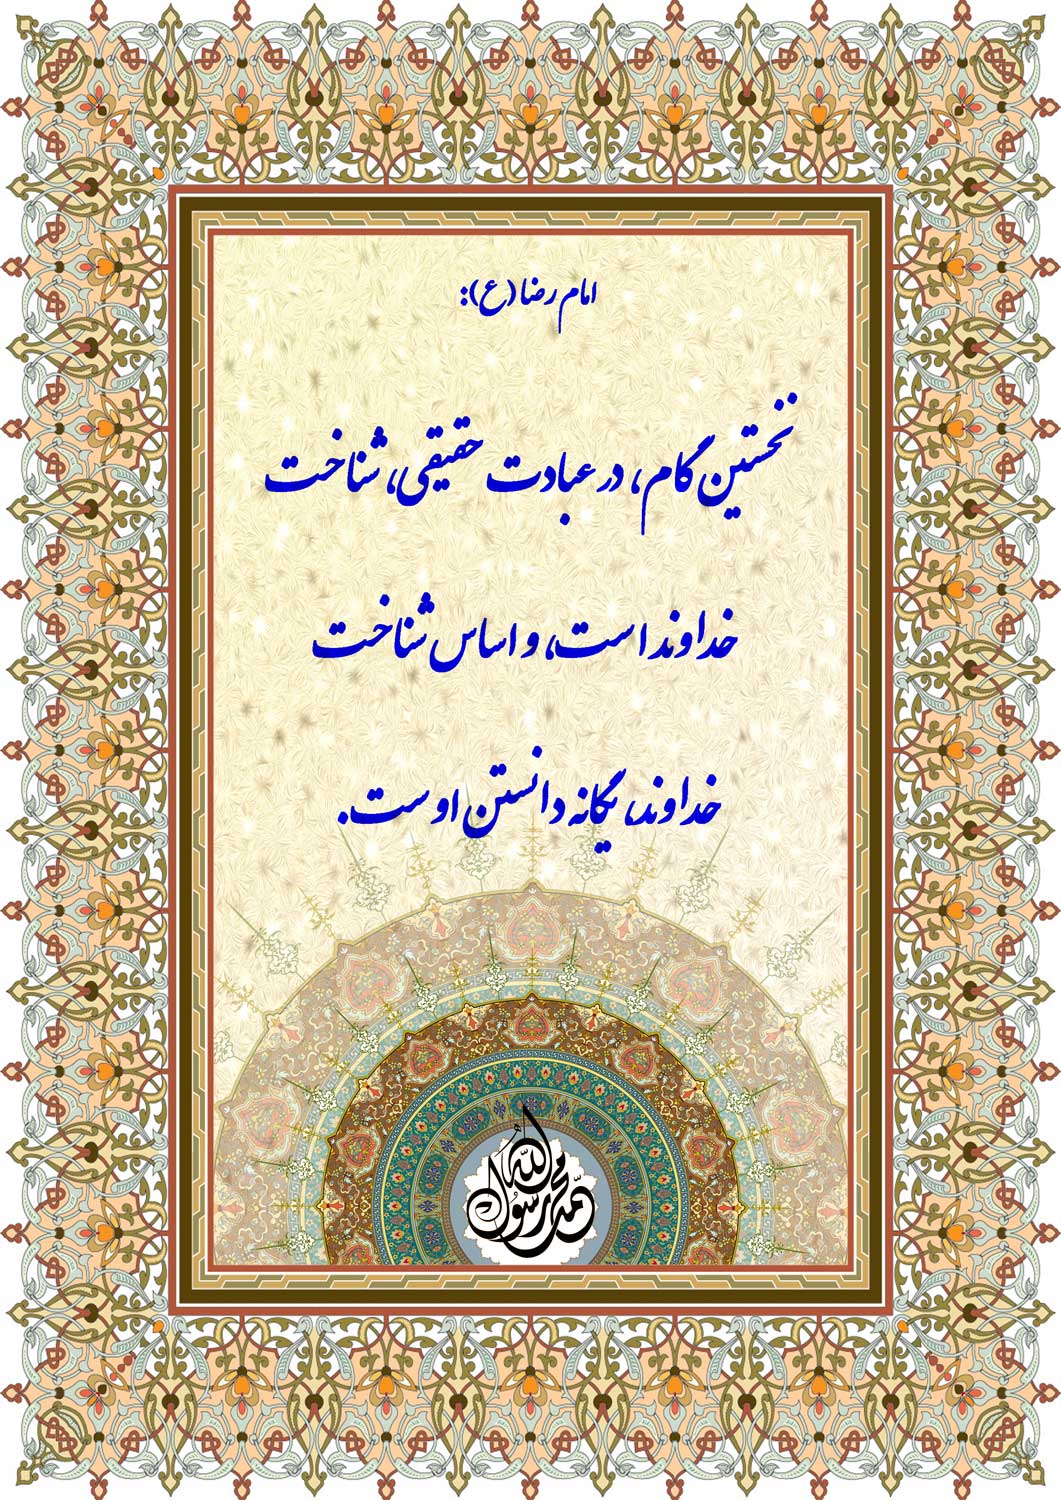 امام رضا (ع):
نخستین گام، در عبادت حقیقی، شناخت
خداوند است، و اساس شناخت
خداوند، یگانه دانستن اوست.
محمد رسول الله